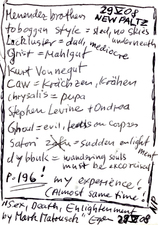 Menendez brothers 29V08
NEW PALTZ
toboggan style = sled, no skies underneath
Lackluster = dull, mediocre
Grist = Mahlgut
Kurt Vonnegut
Caw = Krächzen, Krähen
chrysalis = pupa
Stephen Levine + Ondrea
Ghoul = evil, feeds on corpses
Satori Zen = sudden enlightenment
dybbuk = wandering souls
must be exorcised
p. 196! my experience!
(Almost same time!
"Sex, Death, Enlightenment
by Mark Matousek" 29V08